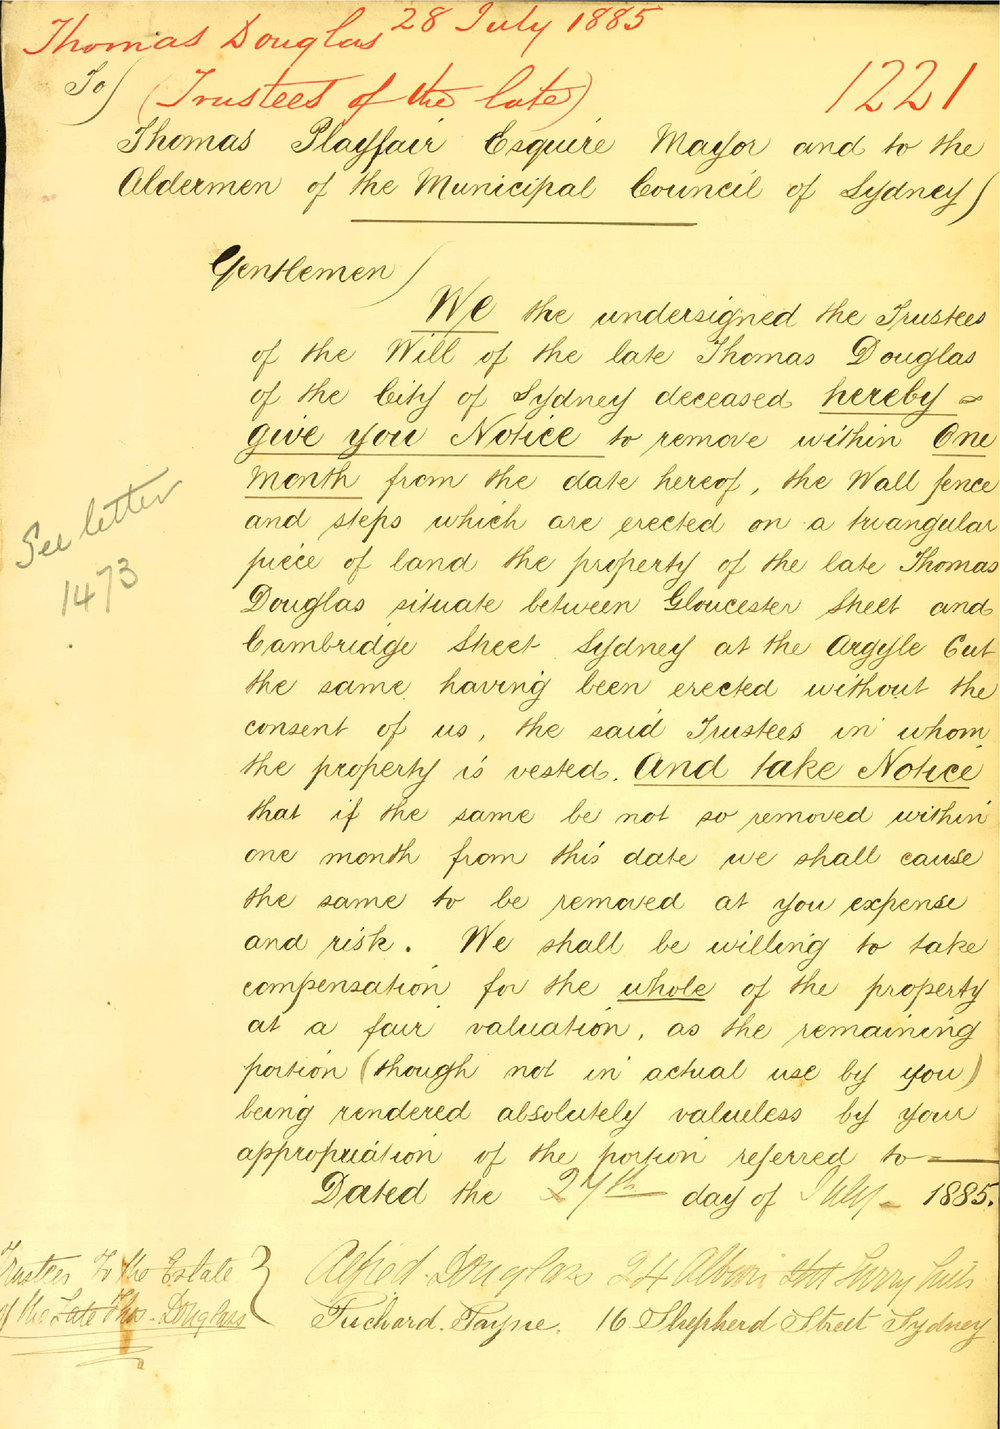 Thomas Douglas 28 July 1885
To
(Trustees of the late)
1221
Thomas Playfair Esquire Mayor and to the
Aldermen of the Municipal Council of Sydney
Gentlemen
We the undersigned the Trustees
of the Will of the late Thomas Douglas
of the City of Sydney deceased hereby
give you Notice to remove within One
Month from the date hereof, the Wall fence
and steps which are erected on a triangular
piece of land the property of the late Thomas
Douglas situate between Gloucester Street and
Cambridge Street Sydney at the Argyle Cut
the same having been erected without the
consent of us, the said Trustees in whom
the property is vested. And take Notice
that if the same be not so removed within
one month from this date we shall cause
the same to be removed at you expense
and risk. We shall be willing to take
compensation for the whole of the property
at a fair valuation, as the remaining
portion (though not in actual use by you)
being rendered absolutely valueless by your
appropriation of the portion referred to
Dated the 27th day of July 1885.
See letter
1473
Trustees To the Estate
of the Late Thos. Douglass
Alfred Douglass 24 Albion Street Surry Hills
Richard Payne. 16 Shepherd Street Sydney